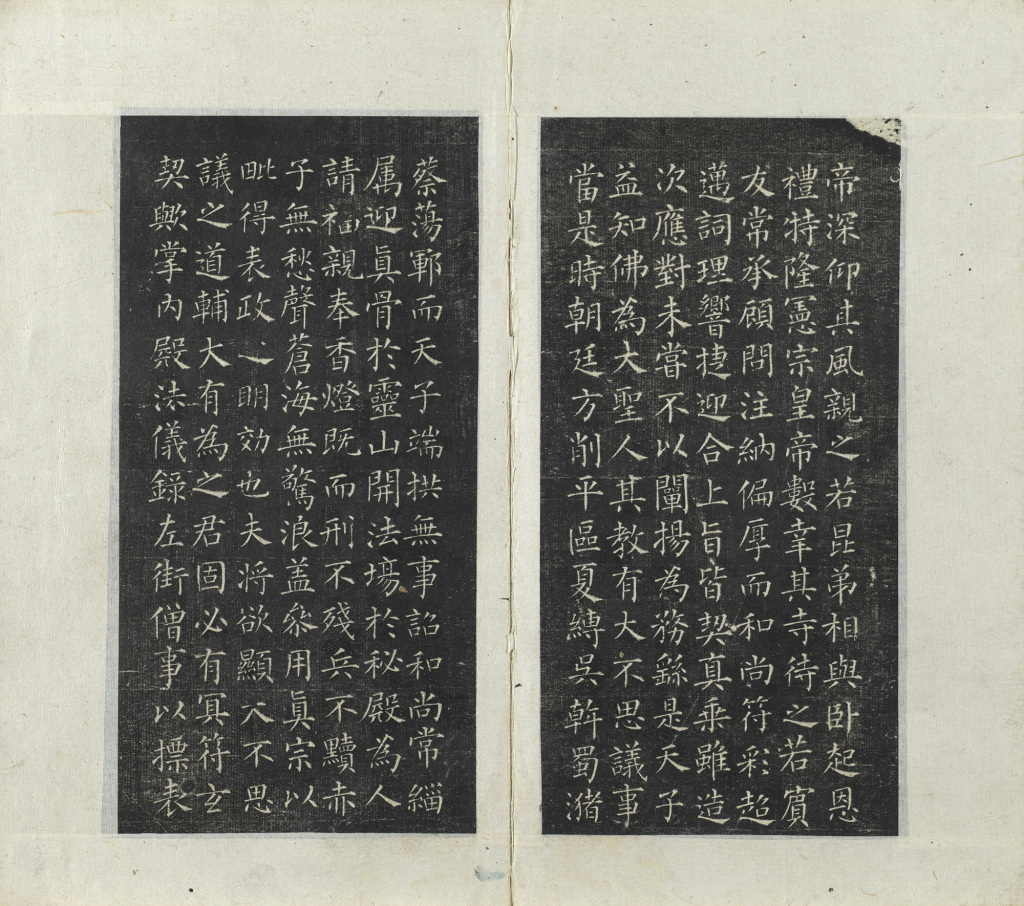 帝深仰其風親之若昆弟相與卧起恩
禮特隆憲宗皇帝數幸其寺待之若賔
友常承顧問注納偏厚而和尚符彩超
邁詞理響捷迎合上旨皆契真乗雖造
次應對未嘗不以闡揚為務繇是天子
益知佛為大聖人其教有大不思議事
當是時朝廷方削平區夏縛吳斡蜀潴
蔡蕩鄆而天子端拱無事詔和尚常緇
属迎真骨於靈山開法塲於秘殿為人
請福親奉香燈既而刑不殘兵不黷赤
子無愁聲蒼海無驚浪盖叅用真宗以
毗得表政之明効也夫将欲顯大不思
議之道輔大有為之君固必有冥符玄
契歟掌內殿法儀錄左街僧事以摽表